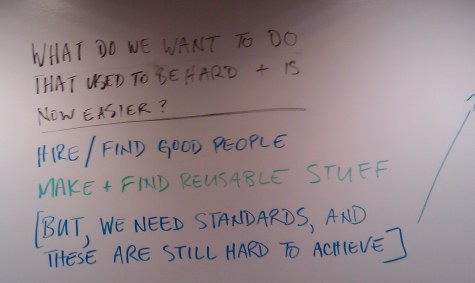 WHAT DO WE WANT TO DO
THAT USED TO BE HARD + IS
NOW EASIER?
HIRE/FIND GOOD PEOPLE
MAKE + FIND REUSABLE STUFF
[BUT, WE NEED STANDARDS, AND
THESE ARE STILL HARD TO ACHIEVE]